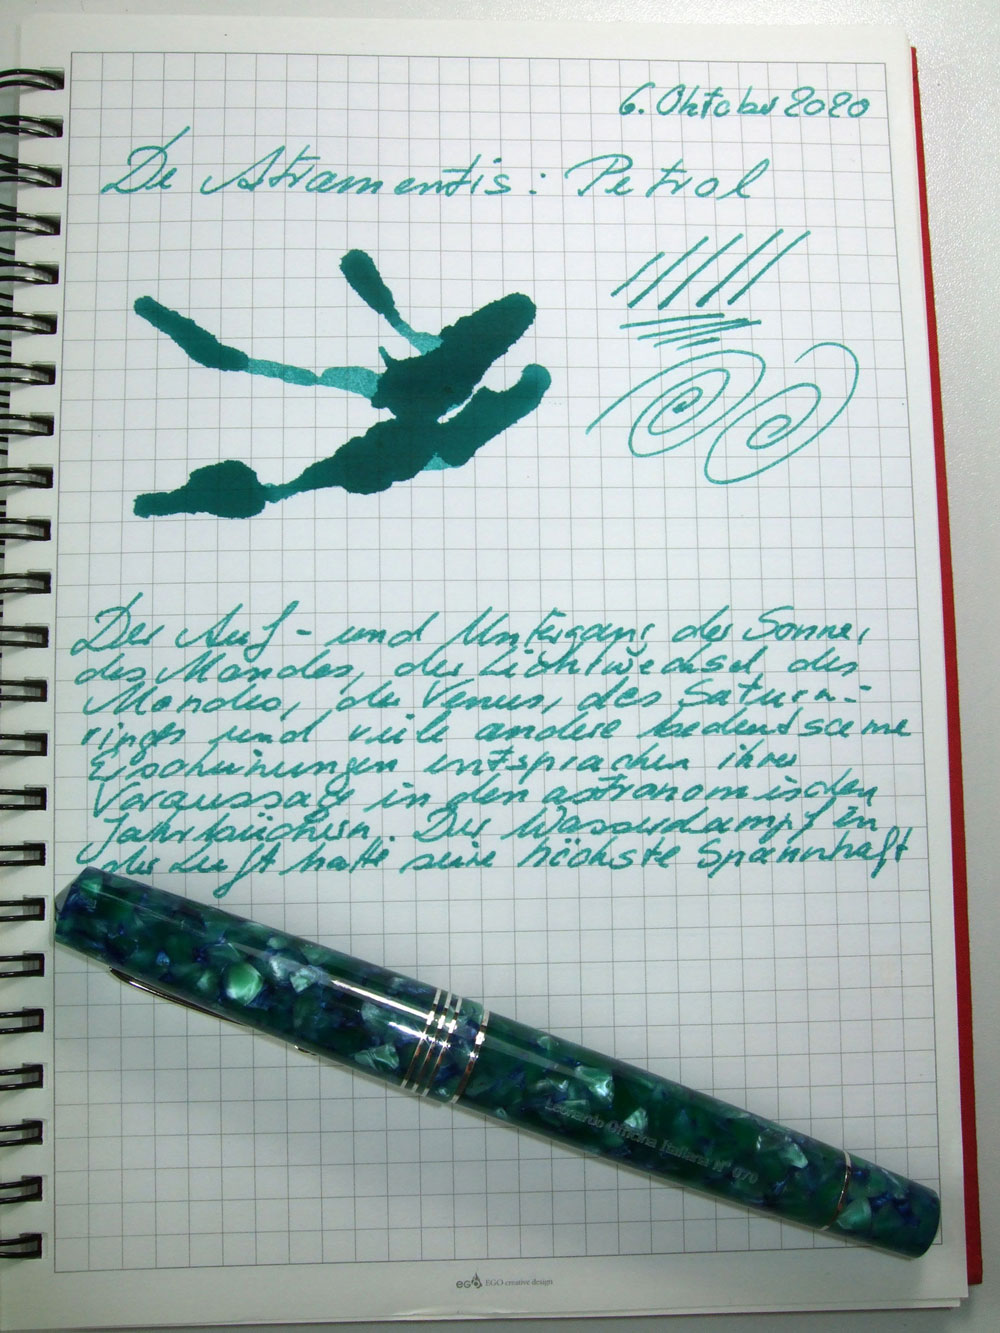 6. Oktober 2020
De Atramentis: Petrol
Der Auf- und Untergang der Sonne,
des Mondes, der Lichtwechsel des
Mondes, der Venus, des Saturn-
ringes und viele andere bedeutsame
Erscheinungen entsprachen ihrer
Voraussage in den astronomischen
Jahrbüchern. Der Wasserdampf in
der Luft hatte seine höchste Spannkraft
Leonardo Officina Italiana N° 070
EGO EGO creative design